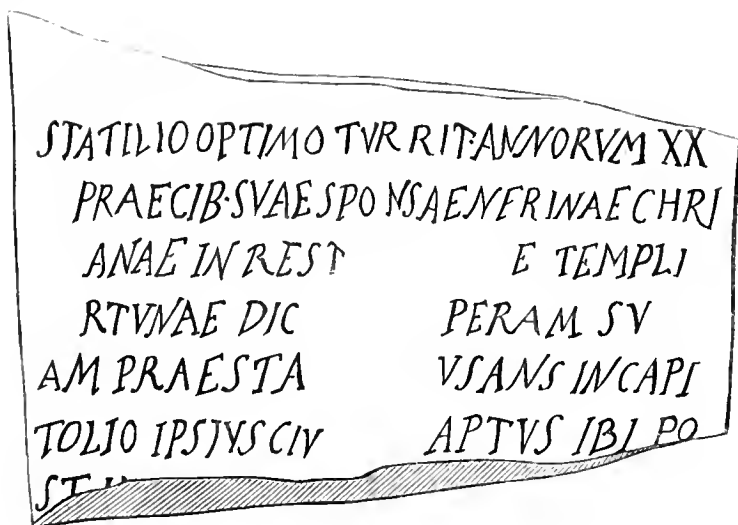 STATILIO OPTIMO TVRRIT·ANNORVM XX
PRAECIB·SVAE SPONSAE NERINAE CHRI
ANAE IN REST E TEMPLI
RTVNAE DIC PERAM SV
AM PRAESTA VSANS IN CAPI
TOLIO IPSIVS CIV APTVS IBI PO
ST